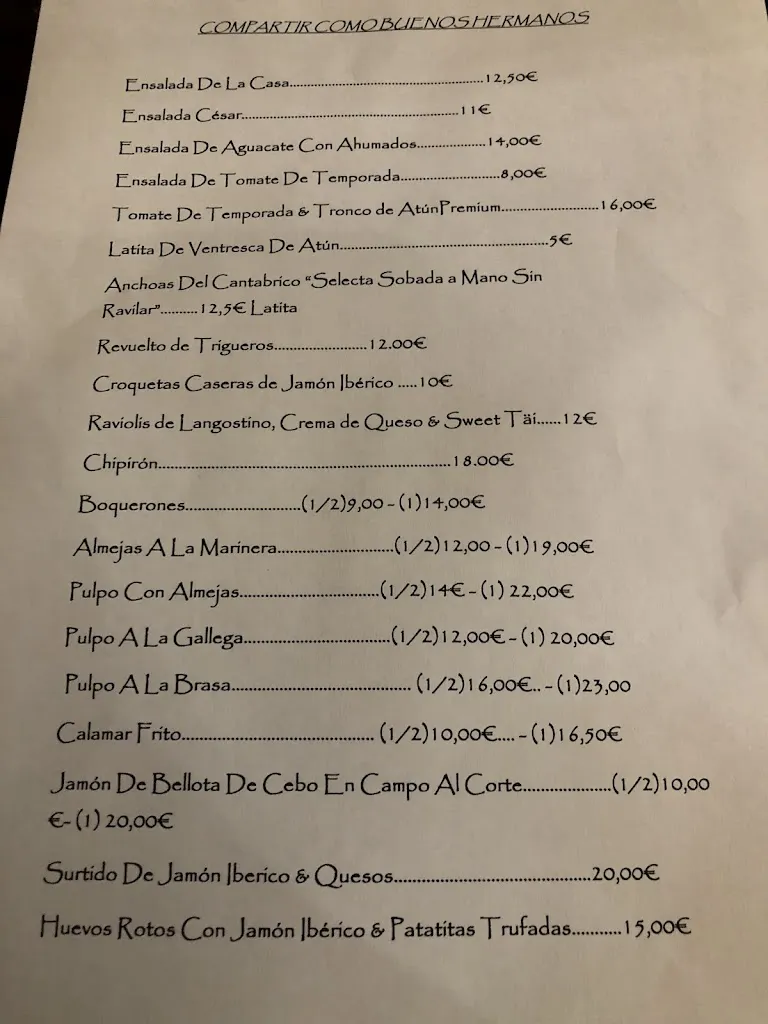 COMPARTIR COMO BUENOS HERMANOS
Ensalada De La Casa..................................................12,50€
Ensalada César........................................................11€
Ensalada De Aguacate Con Ahumados..................14,00€
Ensalada De Tomate De Temporada.........................8,00€
Tomate De Temporada & Tronco de AtúnPremium.........................16,00€
Latita De Ventresca De Atún.....................................................5€
Anchoas Del Cantabrico “Selecta Sobada a Mano Sin
Ravilar”..........12,5€ Latita
Revuelto de Trigueros.......................12.00€
Croquetas Caseras de Jamón Ibérico .....10€
Raviolis de Langostino, Crema de Queso & Sweet Täi......12€
Chipirón.......................................................................18.00€
Boquerones............................(1/2)9,00 - (1)14,00€
Almejas A La Marinera............................(1/2)12,00 - (1)19,00€
Pulpo Con Almejas..................................(1/2)14€ - (1) 22,00€
Pulpo A La Gallega...................................(1/2)12,00€ - (1) 20,00€
Pulpo A La Brasa........................................... (1/2)16,00€.. - (1)23,00
Calamar Frito.............................................. (1/2)10,00€.... - (1)16,50€
Jamón De Bellota De Cebo En Campo Al Corte.....................(1/2)10,00
€- (1) 20,00€
Surtido De Jamón Iberico & Quesos...............................................20,00€
Huevos Rotos Con Jamón Ibérico & Patatitas Trufadas...........15,00€